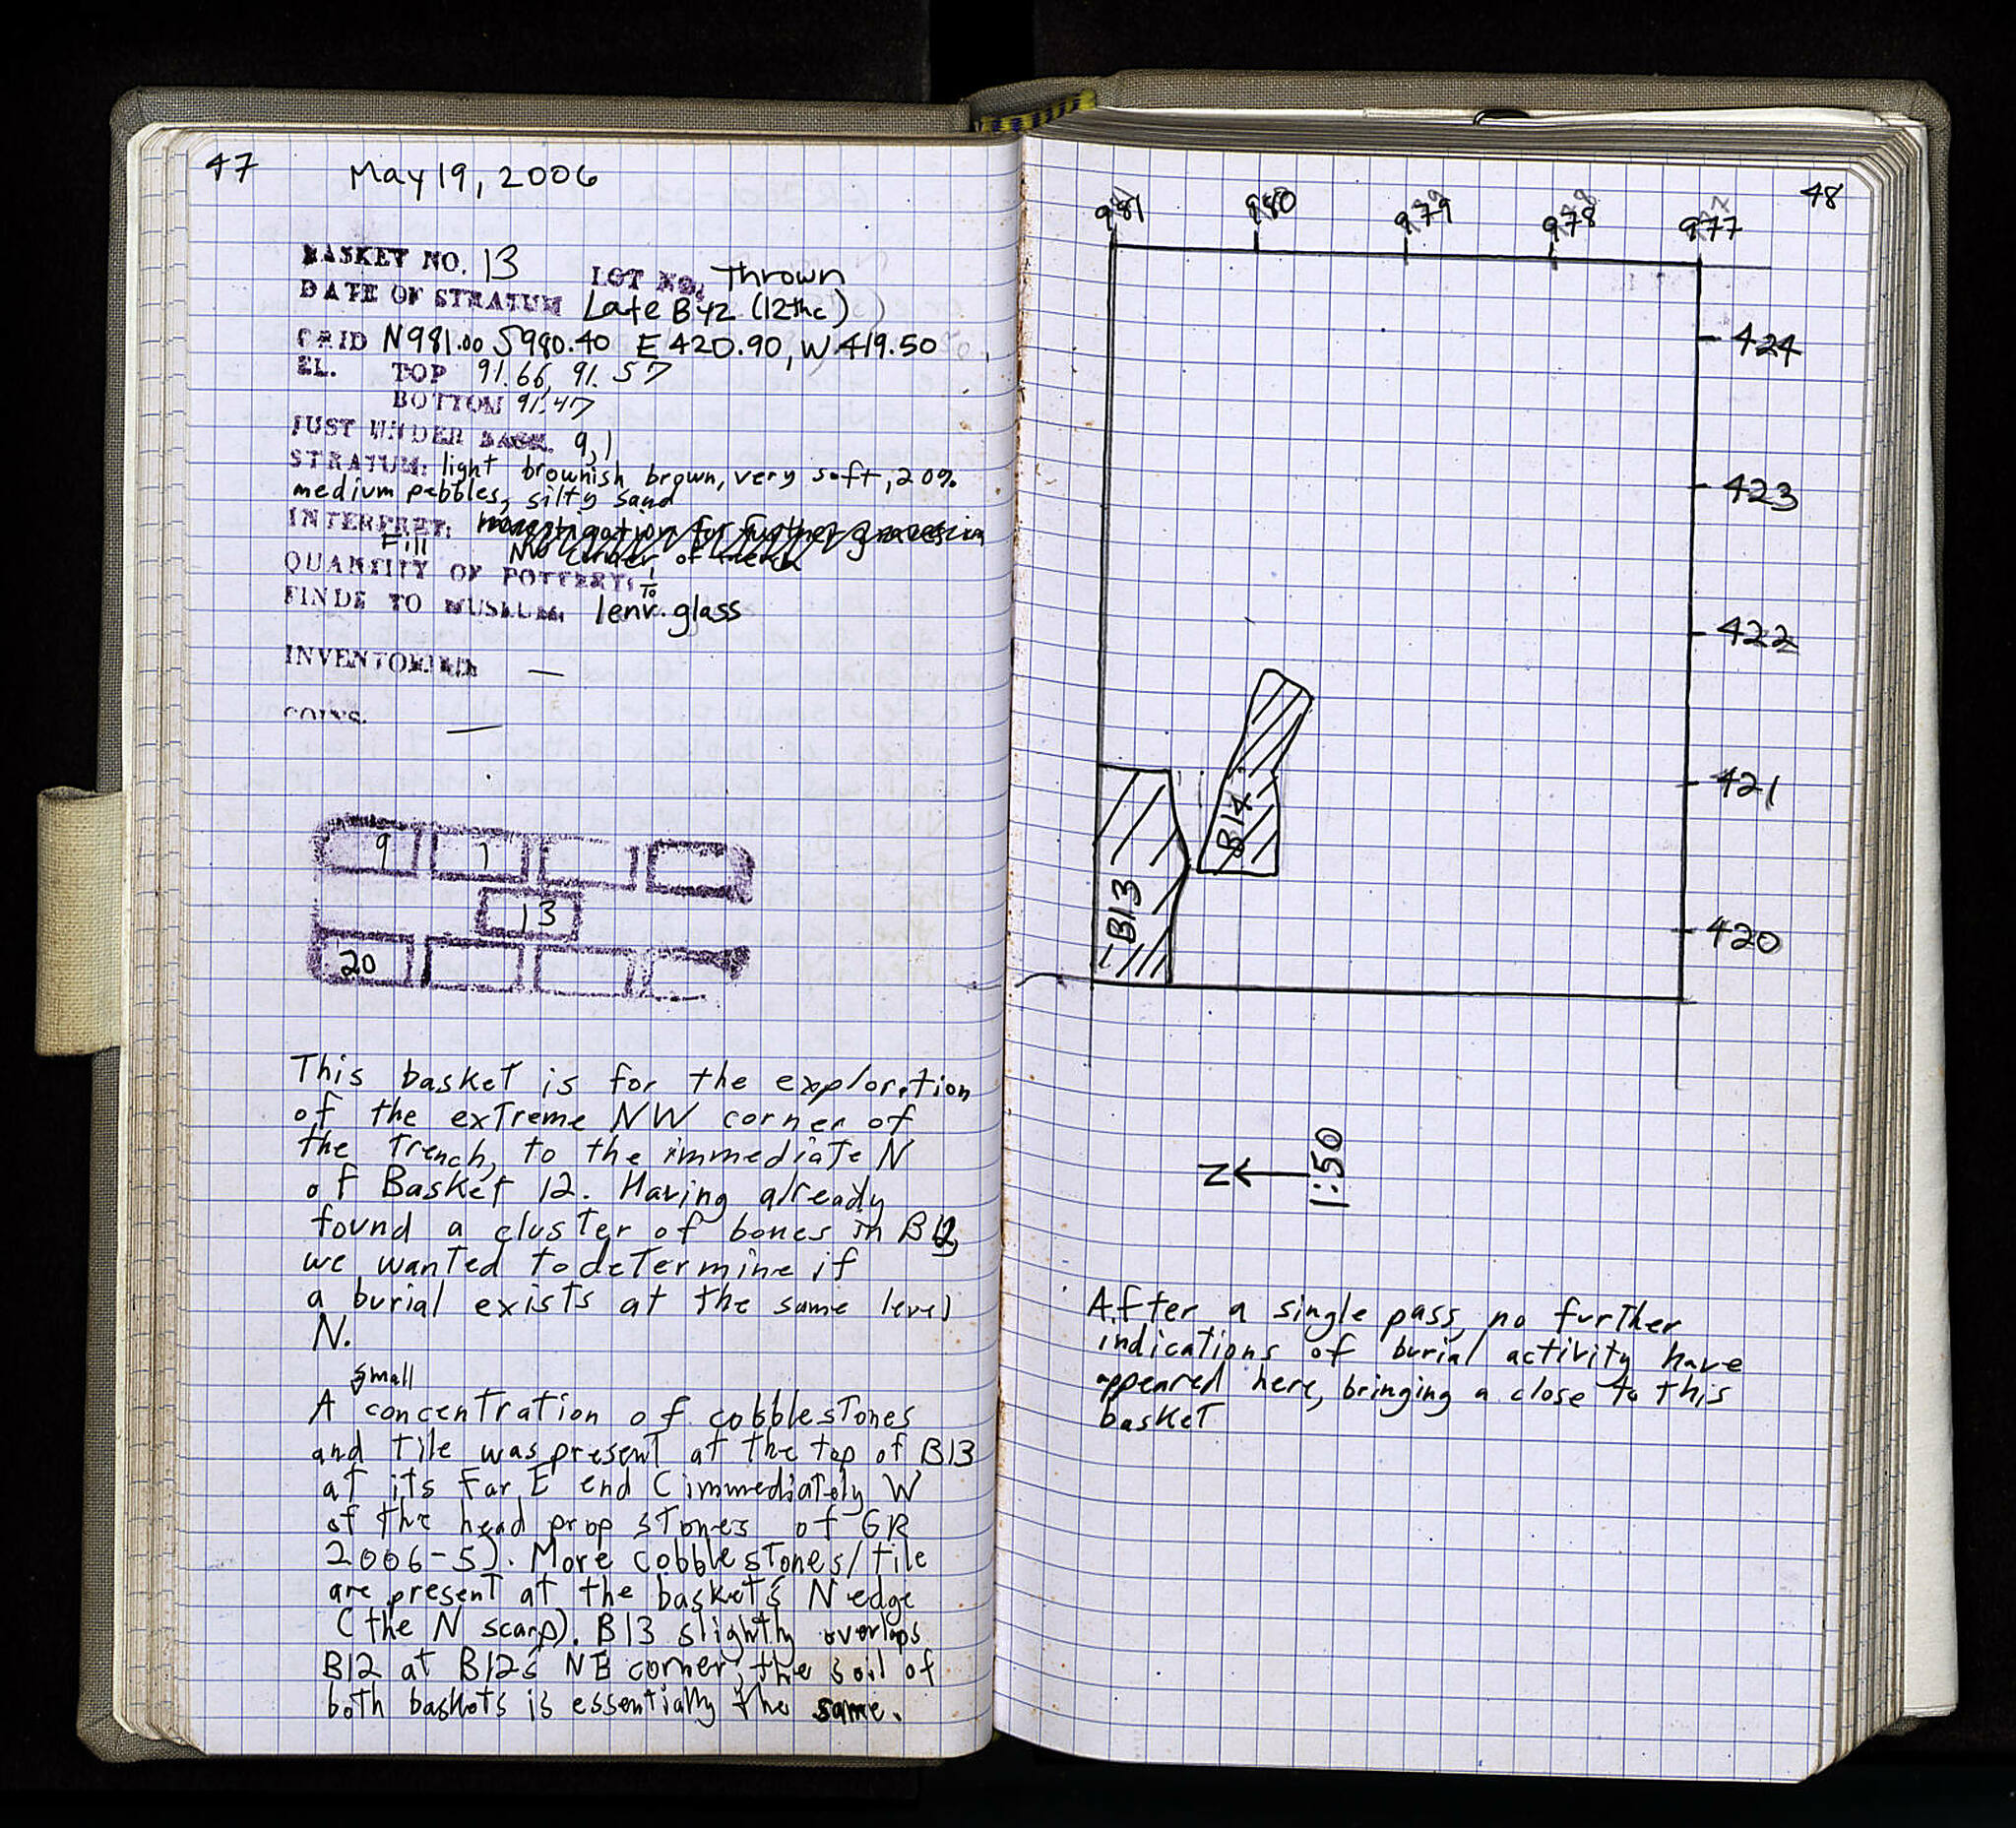 47
May 19, 2006
BASKET NO. 13 LOT NO. Thrown
DATE OF STRATUM Late Byz (12thc)
GRID N981.00 S980.40 E420.90, W419.50
EL. TOP 91.66, 91.57
BOTTOM 91.47
JUST UNDER BASK. 9, 1
STRATUM: light brownish brown, very soft, 20%
medium pebbles, silty sand
INTERPRET: for further graves in
Fill NW corner of trench
QUANTITY OF POTTERY: 1/10
FINDS TO MUSEUM. 1 env. glass
INVENTORIED —
COINS. —
9 1
13
20
This basket is for the exploration
of the extreme NW corner of
the trench, to the immediate N
of Basket 12. Having already
found a cluster of bones in B12,
we wanted to determine if
a burial exists at the same level
N.
small
A concentration of cobblestones
and tile was present at the top of B13
at its far E end (immediately W
of the head prop stones of GR
2006-5). More cobblestones/tile
are present at the basket's N edge
(the N scarp). B13 slightly overlaps
B12 at B12s NE corner, the soil of
both baskets is essentially the same.
48
981 980 979 978 977
424
423
422
421
420
B14
B13
N
1:50
After a single pass, no further
indications of burial activity have
appeared here, bringing a close to this
basket